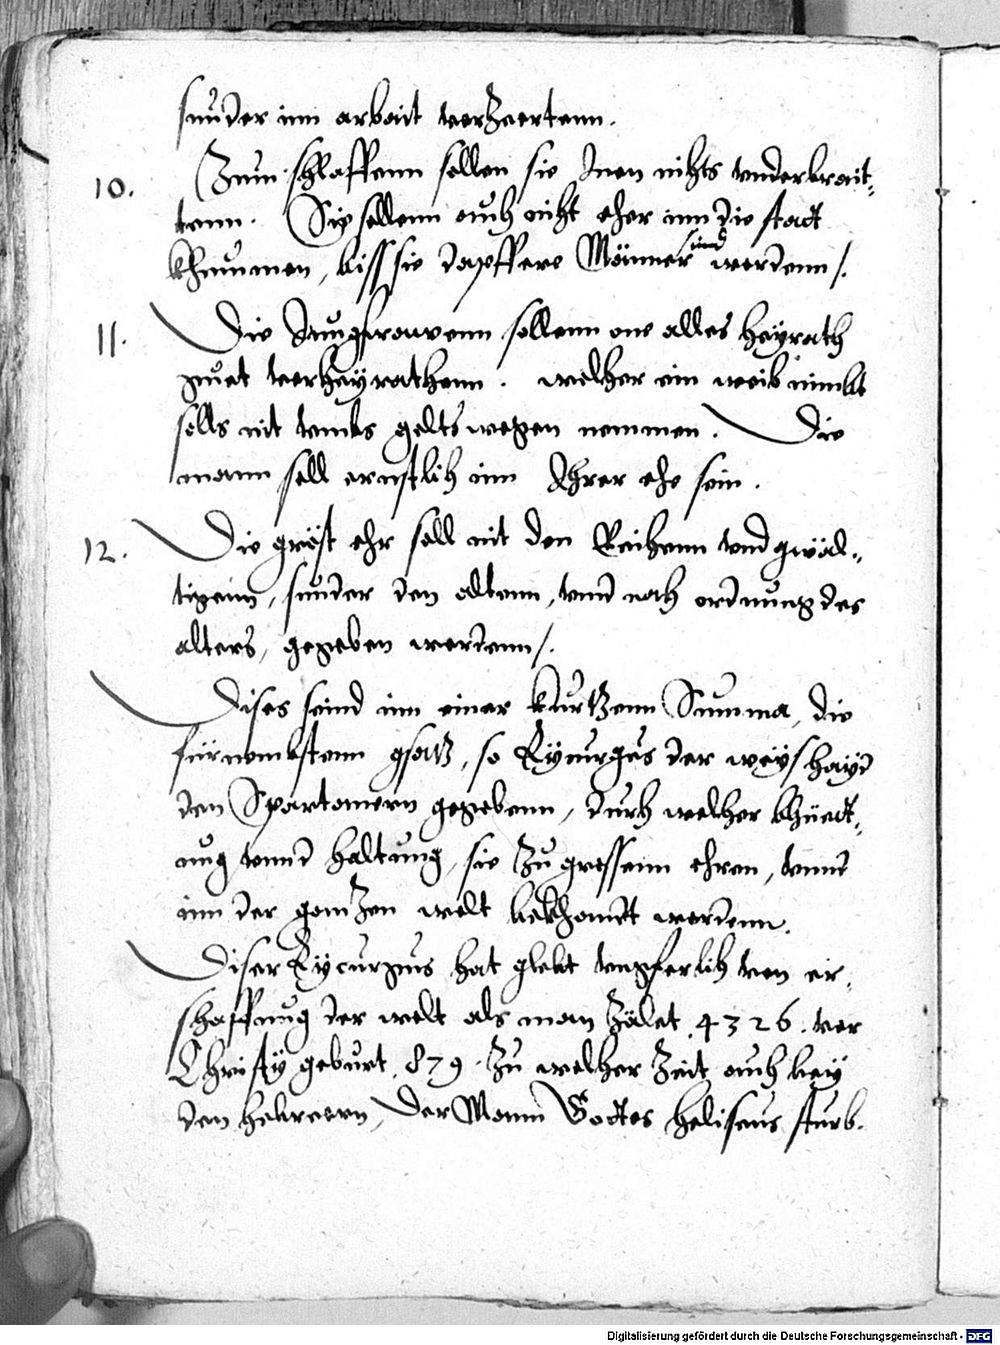 sunder inn arbait verzeertenn.
10. Zum schlaffenn sollen sie Inen nichts underbrait-
tenn. Sie sollenn auch nicht eher inn die statt
khummen, biss sie dapffere Männer sind werdenn /.
11. Die Jungfrauwenn sollenn one alles heyrath
guet verheyrathenn. welcher ein weib nimbt
solls nit umbs gelts wegen nemmen. Die
mann soll ernstlich inn Ihrer ehe sein.
12. Die gröst ehr soll nit den Reichenn und gwäl-
tigenn, sunder den altenn, unnd nach ordnung des
alters, gegeben werdenn /.
Dises seind inn einer kurtzenn Summa, die
fürnembstenn gsatz, so Lycurgus der weyshayd
den Spartanern gegebenn, durch welcher bhüett-
ung unnd haltung, sie zu grossenn ehren, unnd
inn der gantzen welt bekhandt werdenn.
Diser Lycurgus hat glebt ungferlich von er-
schaffung der welt als man zälet. 4326. vor
Christy geburt. 879. Zu welcher Zeit auch bey
den hebreern, Der Mann Gottes heliseus sturb.
Digitalisierung gefördert durch die Deutsche Forschungsgemeinschaft - DFG